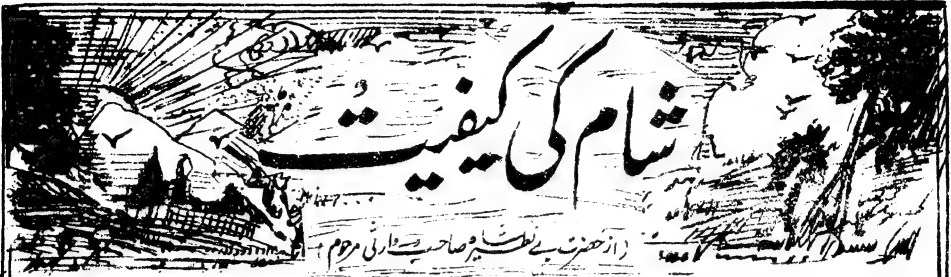 شام کی کیفیت
(از حضرت بے نظیر شاہ صاحب وارثی مرحوم)